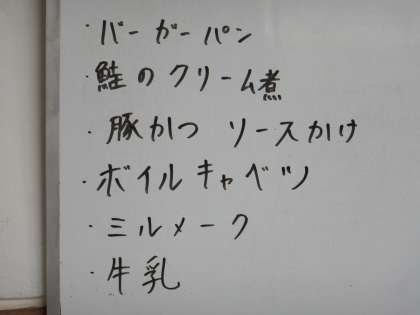 ・バーガーパン
・鮭のクリーム煮
・豚かつ ソースかけ
・ボイルキャベツ
・ミルメーク
・牛乳